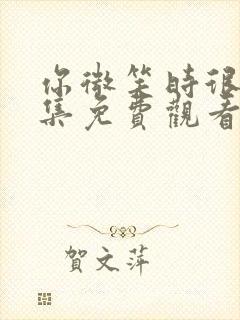 你微笑時很
集免費觀看
賀文萍